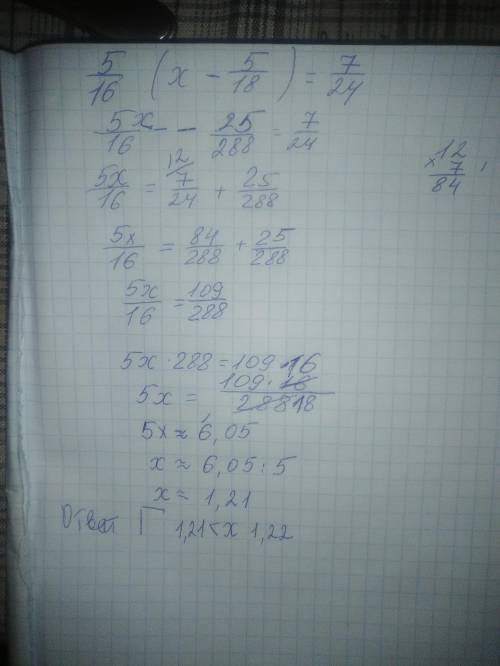 5/16 (x - 5/18) = 7/24
5x/16 - - 25/288 = 7/24
5x/16 = 7/24 + 25/288
12
5x/16 = 84/288 + 25/288
5x/16 = 109/288
5x · 288 = 109 · 16
5x = 109 · 16/288 18
5x ≈ 6,05
x ≈ 6,05 : 5
x ≈ 1,21
Ответ Г 1,21 < x 1,22
12
× 7
84